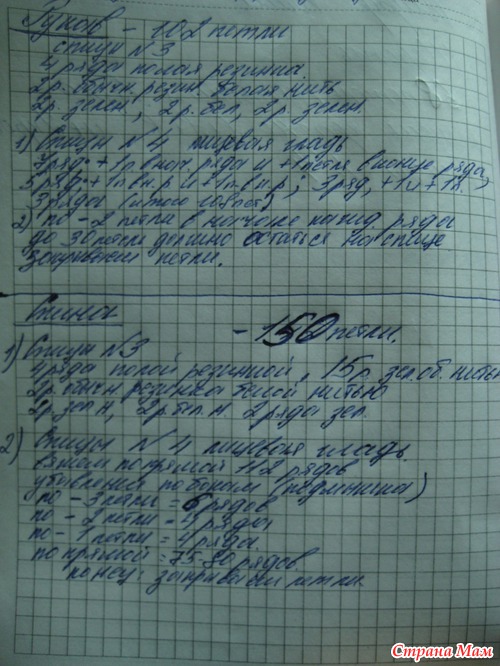 Рукав – 102 петли
спицы N 3
4 ряда полая резинка.
2 р. обычн. резин. белая нить
2 р. зелен, 2 р. бел, 2 р. зелен.
1) Спицы N 4 лицевая гладь
7 ряд. + 1 п в нач. ряда и +1 петля в конце ряда,
5 ряд. + 1 п в н. р и +1 п. в к.р, 3 ряд, +1 и +1 к.
3 ряда (итого
2) по – 2 петли в начале кажд. ряда
до 30 петли должно остаться на спице
закрываем петли.
Спина – 150 петли.
1) Спицы N 3
4 ряда полой резинкой, 15 р. зел. об. нитью
2 р. обычн резинка белой нитью
2 р. зел н, 2 р бел. н 2 ряда зел.
2) Спицы N 4 лицевая гладь.
вяжем по прямой 112 рядов
убавления по бокам (подмышка)
по – 3 петли = 6 рядов
по – 2 петли = 4 ряда
по – 1 петли = 4 ряда.
по прямой = 75-80 рядов.
конец: закрываем петли.
Страна Мам